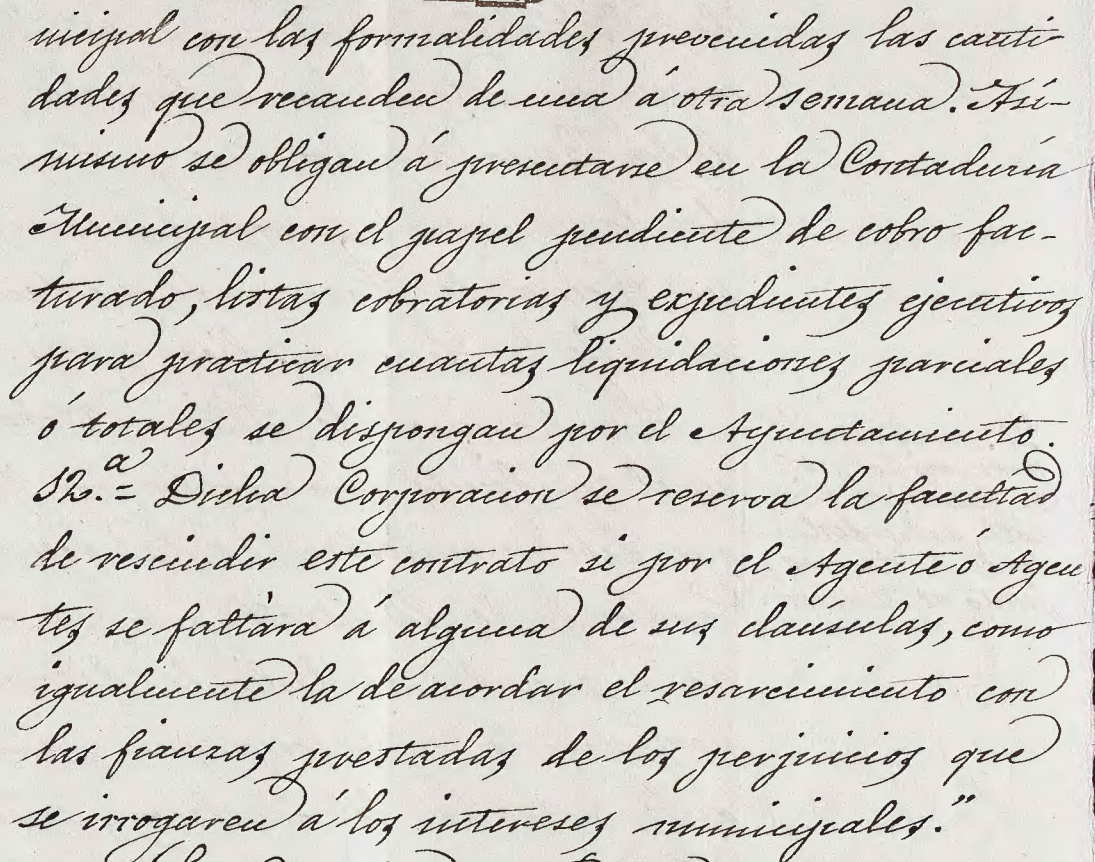 nicipal con las formalidades prevenidas las canti-
dades que recauden de una á otra semana. Asi-
mismo se obligan á presentarse en la Contaduría
Municipal con el papel pendiente de cobro fac-
turado, listas cobratorias y expedientes ejecutivos
para practicar cuantas liquidaciones parciales
ó totales se dispongan por el Ayuntamiento.
12.ª = Dicha Corporacion se reserva la facultad
de rescindir este contrato si por el Agente ó Agen
tes se faltára á alguna de sus claúsulas, como
igualmente la de acordar el resarcimiento con
las fianzas prestadas de los perjuicios que
se irrogaren á los intereses municipales."